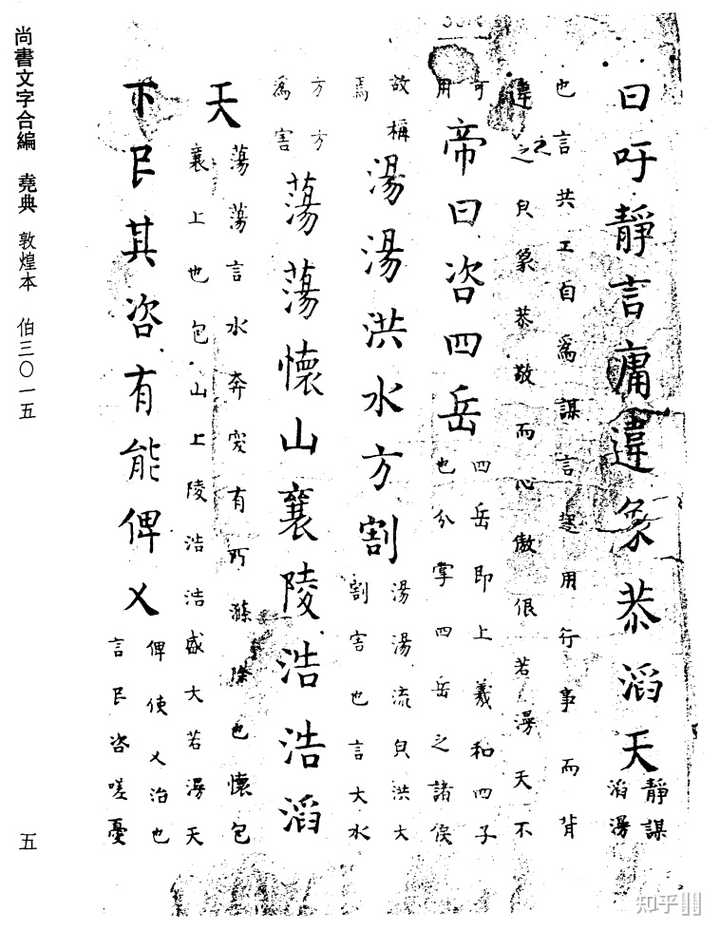 曰吁靜言庸違象恭滔天
靜謀
滔漫
也言共工自爲謀言起用行事而背
違之之皃象恭敬而心傲佷若漫天不
可
用
帝曰咨四岳
四岳即上羲和四子
也分掌四岳之諸侯
故稱
焉
湯湯洪水方割
湯湯流皃洪大
割害也言大水
方方
為害
蕩蕩懷山襄陵浩浩滔
天
蕩蕩言水奔突有所滌除也懷包
襄上也包山上陵浩浩盛大若漫天
下民其咨有能俾乂
俾使乂治也
言民咨嗟憂
尚書文字合編 堯典 敦煌本 伯三〇一五
五
知乎